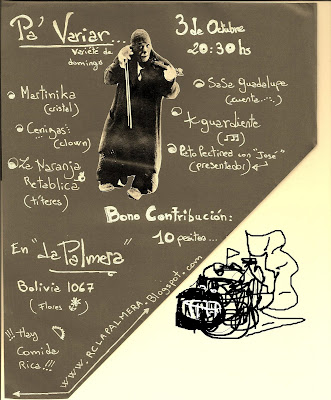 Pa' Variar...
Varieté de
domingo
3 de Octubre
20:30 hs
Martinika
(cristal)
Cenizas:
(clown)
La Naranja
Retablica
(títeres)
SaSa Guadalupe
(cuenta...)
Aguardiente
Peto Pectineo con "José"
(presentador)
Bono Contribución:
10 pesitos...
En "La Palmera"
Bolivia 1067
(Flores)
!!! Hay
Comida
Rica!!!
www.RCLAPALMERA.Blogspot.com